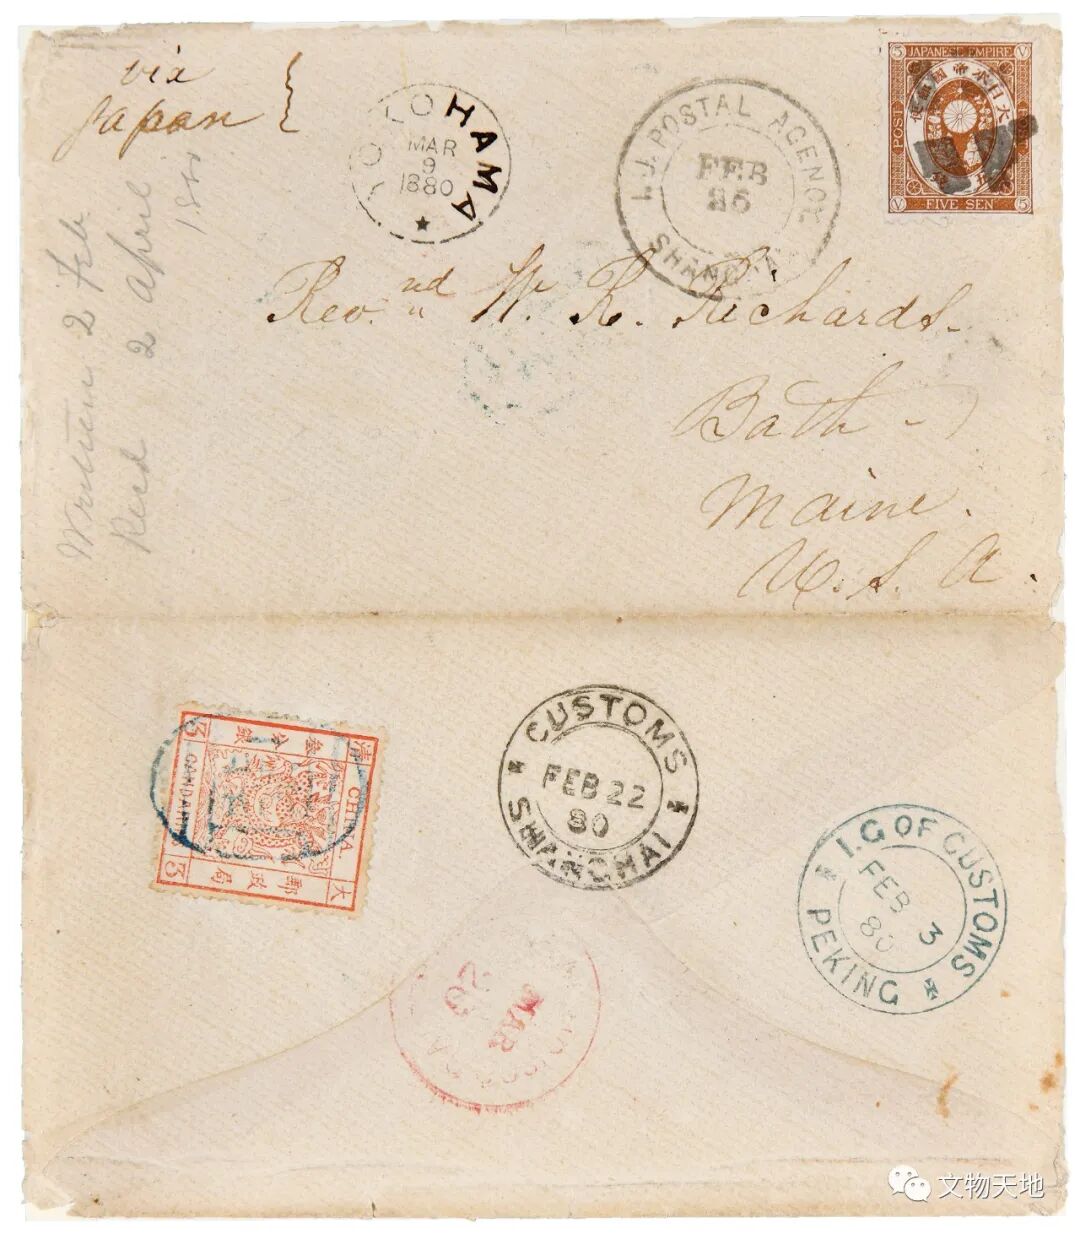 via
Japan
YOKOHAMA
MAR
9
1880
I.J. POSTAL AGENCY
FEB
SHANGHAI
5 JAPANESE EMPIRE V
大日本帝國郵便
POST
V FIVE SEN 5
Rev.nd W. R. Richards.
Bath
Maine.
U. S. A.
Written 2 Feb
Recd 2 April
CUSTOMS
FEB 22
80
SHANGHAI
I.G OF CUSTOMS
FEB 3
80
PEKING
大清郵政局
CHINA
叁分銀
3 CANDARIN 3
MAR
20
文物天地